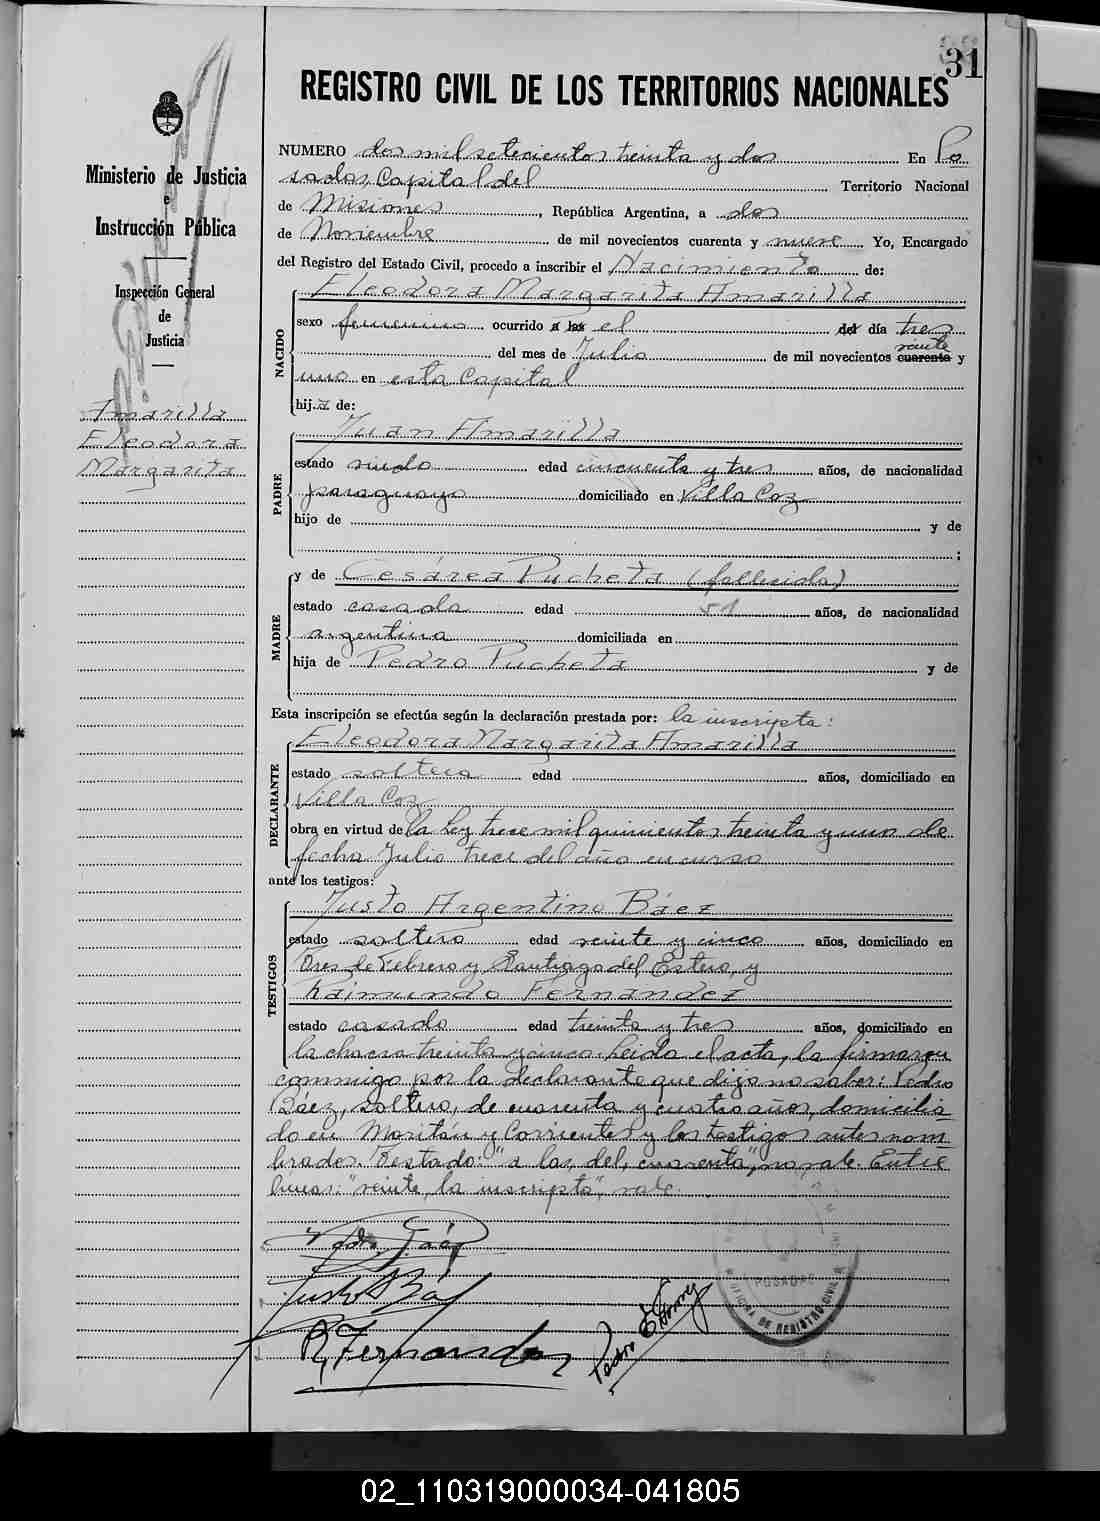 31
REGISTRO CIVIL DE LOS TERRITORIOS NACIONALES
Ministerio de Justicia
e
Instrucción Pública
Inspección General
de
Justicia
Amarilla
Eleodora
Margarita
NUMERO dos mil setecientos treinta y dos En Po
sadas, Capital del Territorio Nacional
de Misiones, República Argentina, a dos
de Noviembre de mil novecientos cuarenta y nueve Yo, Encargado
del Registro del Estado Civil, procedo a inscribir el Nacimiento de:
NACIDO
Eleodora Margarita Amarilla
sexo femenino ocurrido a las el del día tres
del mes de Julio de mil novecientos cuarenta veinte y
uno en esta Capital
hija de:
PADRE
Juan Amarilla
estado viudo edad cincuenta y tres años, de nacionalidad
paraguayo domiciliado en Villa Coz
hijo de y de
;
MADRE
y de Cesárea Pucheta (fallecida)
estado casada edad 51 años, de nacionalidad
argentina domiciliada en
hija de Pedro Pucheta y de
Esta inscripción se efectúa según la declaración prestada por: la inscripta:
DECLARANTE
Eleodora Margarita Amarilla
estado soltera edad años, domiciliado en
Villa Coz
obra en virtud de la Ley trece mil quinientos treinta y uno de
fecha Julio trece del año en curso
ante los testigos:
TESTIGOS
Justo Argentino Báez
estado soltero edad veinte y cinco años, domiciliado en
Tres de Febrero y Santiago del Estero, y
Raimundo Fernandez
estado casado edad treinta y tres años, domiciliado en
la chacra treinta y cinco. Leida el acta, la firmaron
conmigo por la declarante que dijo no saber: Pedro
Báez, soltero, de cuarenta y cuatro años, domicilia-
do en Moritán y Corrientes y los testigos antes nom-
brados. Testado: "a las, del, cuarenta", no vale. Entre
líneas: "veinte, la inscripta", vale.
Pedro Báez
Justo A Báez
R. Fernandez
Pedro
POSADAS
OFICINA DE REGISTRO CIVIL
02_110319000034-041805